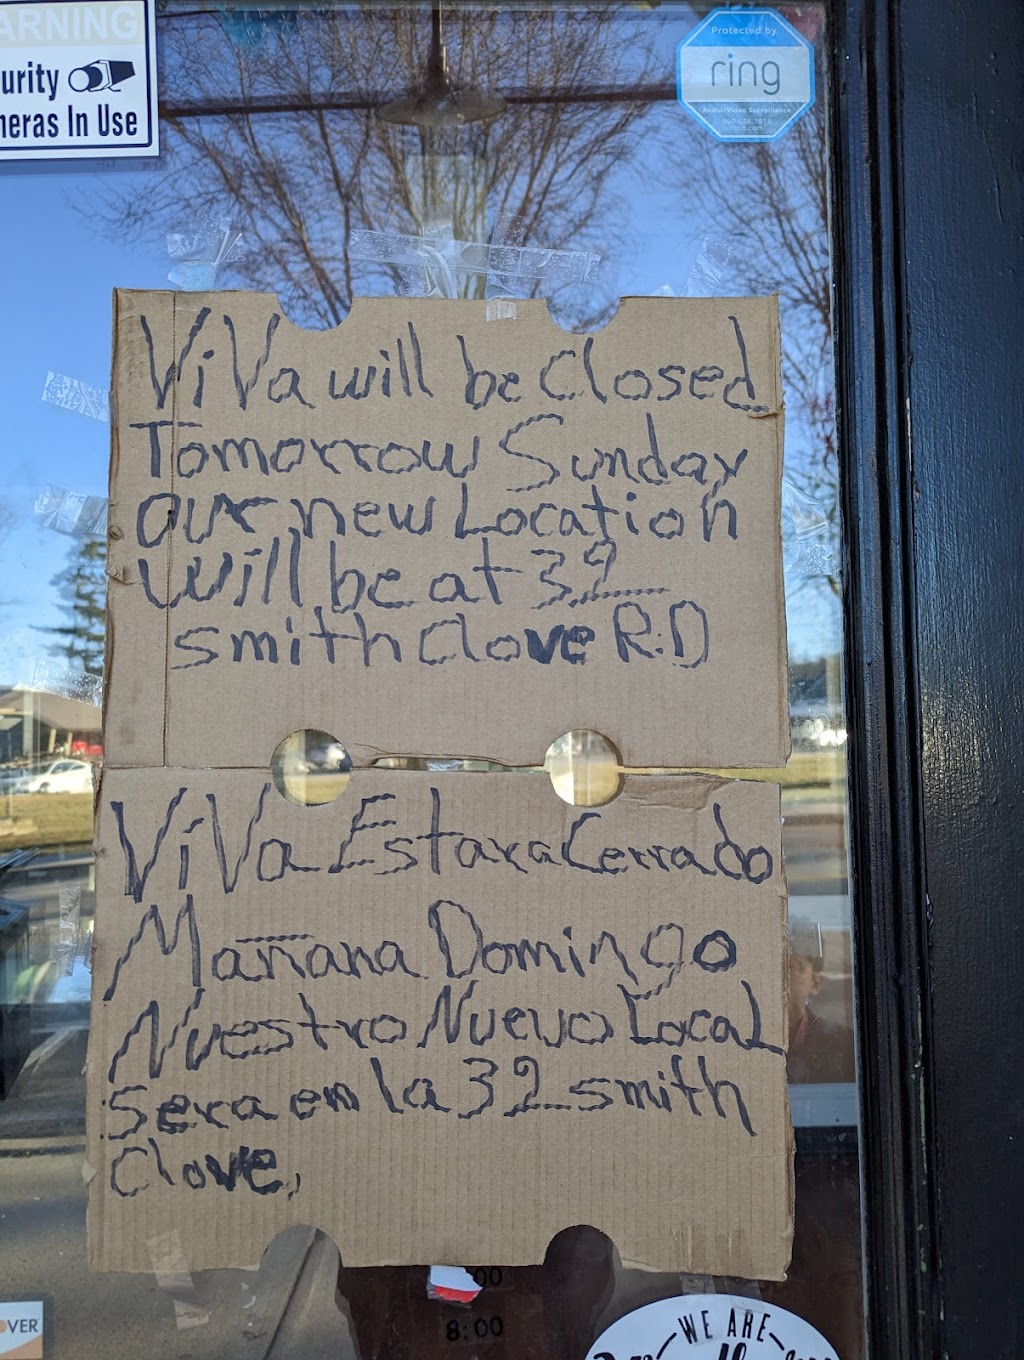 ARNING
urity
meras In Use
Protected by
ring
Audio/Video Surveillance
ring.com
ViVa will be Closed
Tomorrow Sunday
our new Location
will be at 32
smith Clove R.D
ViVa Estara Cerrado
Mañana Domingo
Nuestro Nuevo Local
sera en la 32 smith
Clove,
00
8:00
OVER
WE ARE